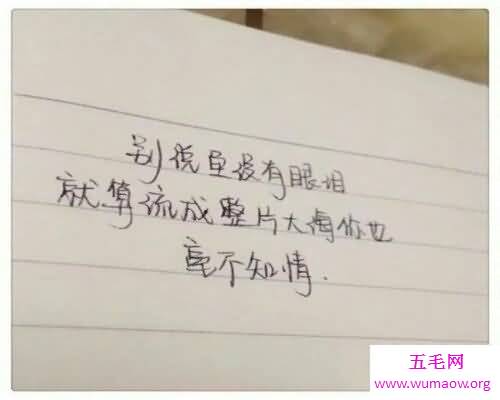 别说鱼没有眼泪
就算流成整片大海你也
毫不知情.
五毛网
www.wumaow.org